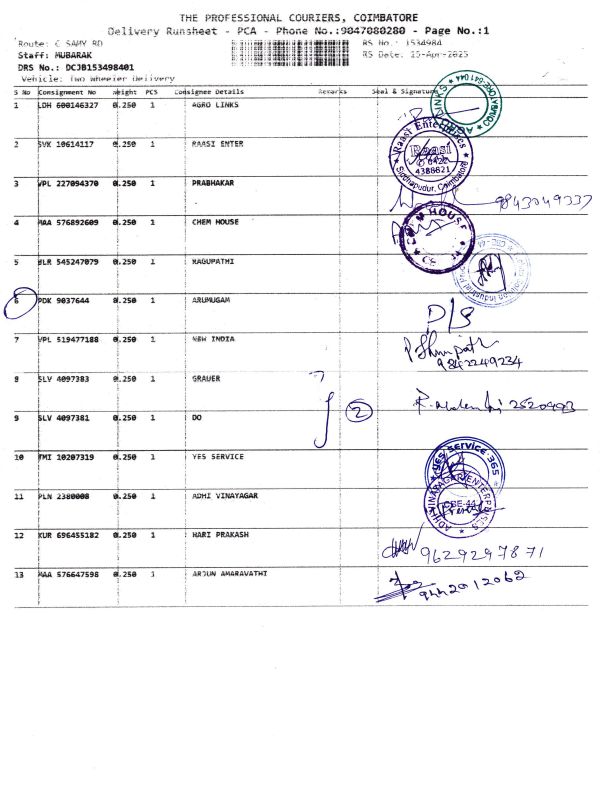 THE PROFESSIONAL COURIERS, COIMBATORE
Delivery Runsheet - PCA - Phone No.:9047080280 - Page No.:1
Route: C SAMY RD RS No.: 1534984
Staff: MUBARAK RS Date: 15-Apr-2025
DRS No.: DCJB153498401
Vehicle: Two Wheeler Delivery
S No Consignment No Weight PCS Consignee Details Remarks Seal & Signature
1 LDH 600146327 0.250 1 AGRO LINKS
2 SVK 10614117 0.250 1 RAASI ENTER
Raasi Enterprises
Raasi
0422
4388621
Sidhapudur, Coimbatore
3 VPL 227094370 0.250 1 PRABHAKAR
9843049337
4 MAA 576892609 0.250 1 CHEM HOUSE
CHEM HOUSE
5 BLR 545247079 0.250 1 RAGUPATHI
6 PDK 9037644 0.250 1 ARUMUGAM
D/S
7 VPL 519477188 0.250 1 NEW INDIA
9842249234
8 SLV 4097383 0.250 1 GRAUER
2 2520493
9 SLV 4097381 0.250 1 DO
10 TMI 10207319 0.250 1 YES SERVICE
YES SERVICE 365
11 PLN 2380008 0.250 1 ADHI VINAYAGAR
ADHI VINAYAGAR ENTERPRISES
CBE-44
12 KUR 696455182 0.250 1 HARI PRAKASH
9629297871
13 MAA 576647598 0.250 1 ARJUN AMARAVATHI
9442012062